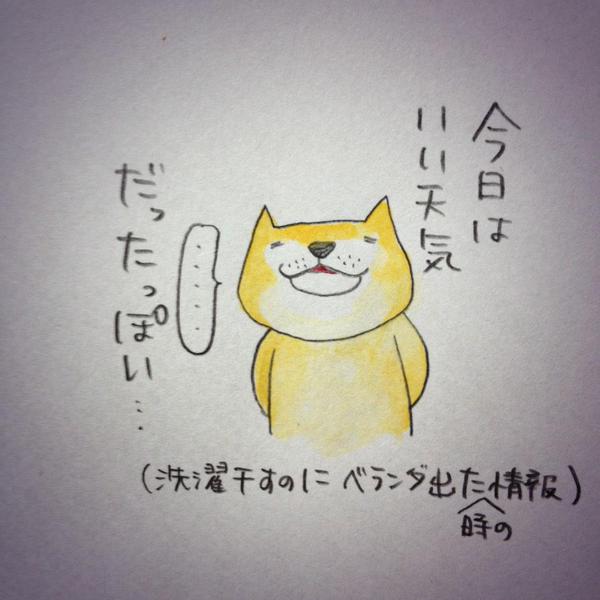 今日は
いい天気
......
だったっぽい...
(洗濯干すのに ベランダ出た時の情報)